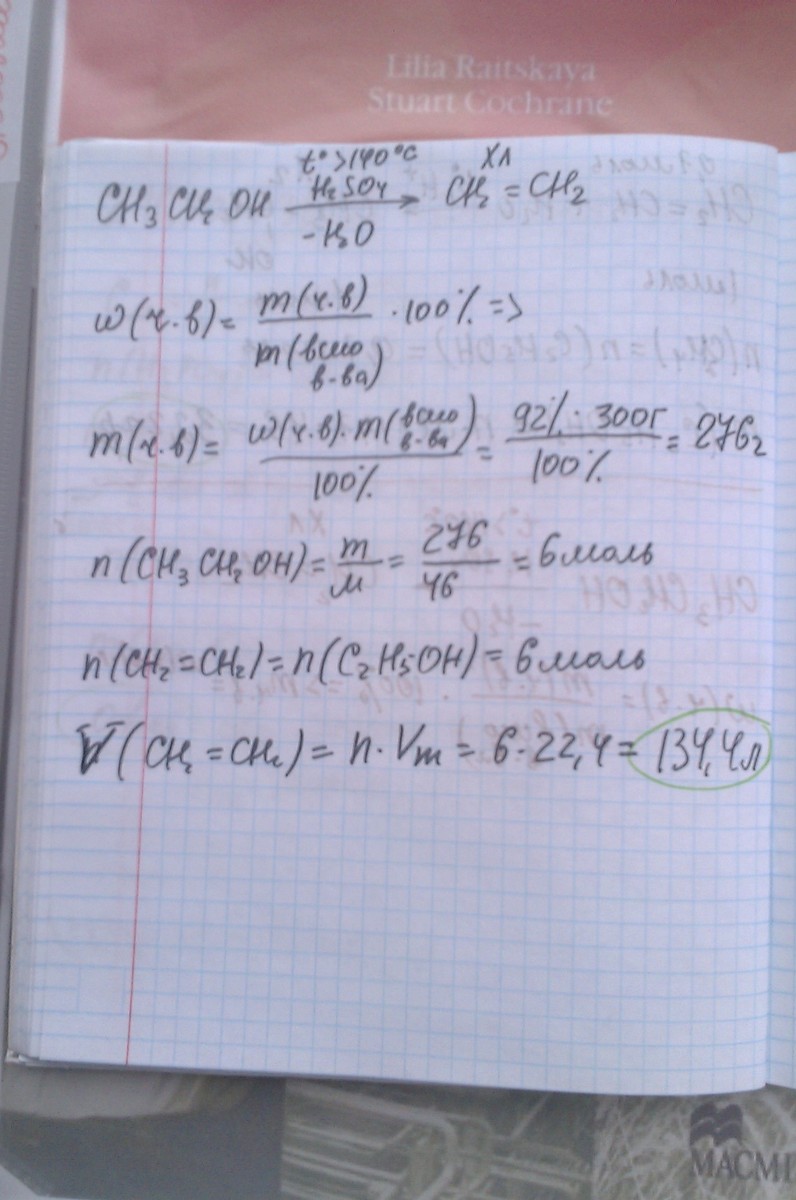 Lilia Raitskaya
Stuart Cochrane
t° >140°C
H2SO4
Xл
CH3CH2OH → CH2 = CH2
-H2O
ω(ч.в) = m(ч.в) / m(всего в-ва) · 100% =>
m(ч.в) = ω(ч.в) · m(всего в-ва) / 100% = 92% · 300г / 100% = 276г
n(CH3CH2OH) = m / M = 276 / 46 = 6 моль
n(CH2=CH2) = n(C2H5OH) = 6 моль
V(CH2=CH2) = n · Vm = 6 · 22,4 = 134,4л
MACMI